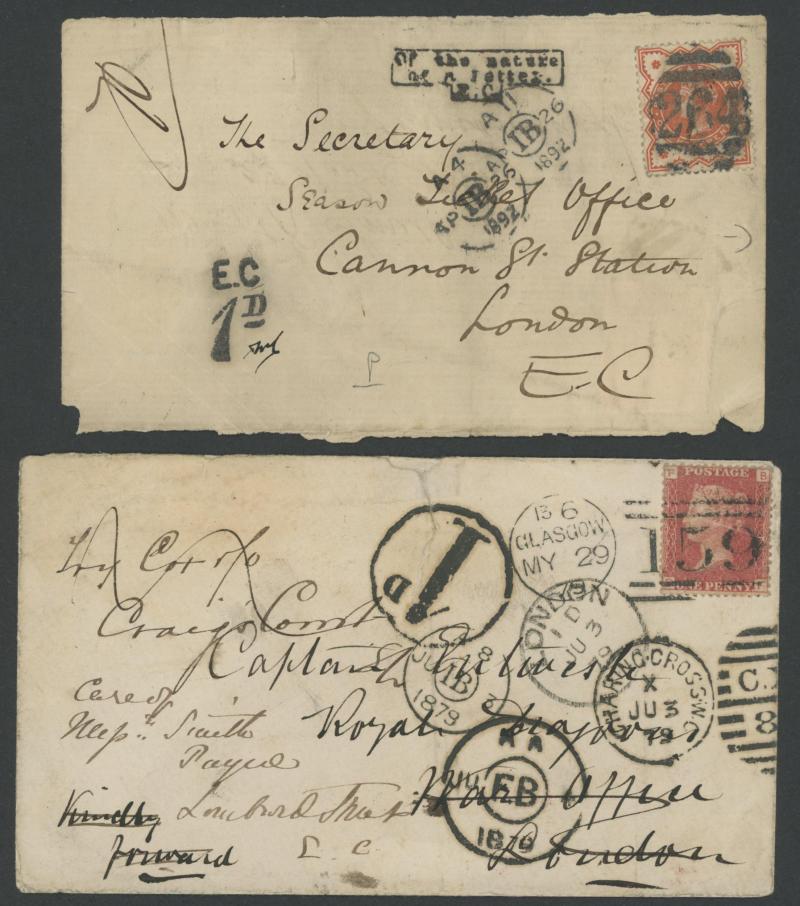 Of the nature
of a letter.
E.C.
264
A 11
IB
AP 26
1892
A 4
IB
AP 26
1892
The Secretary
Season Ticket Office
Cannon St. Station
London
E C
E.C
1D
P
POSTAGE
F B
ONE PENNY
159
13 6
GLASGOW
MY 29
LONDON
D
JU 3
79
CHARING·CROSS·W.C
X
JU 3
79
8
1D
8
JU 3
IB
1879
EB
1879
Craigs Court
Captain
Royal Dragoons
War Office
London
Care of
Messrs Smith
Payne
Lombard Street
E C
Kindly
forward